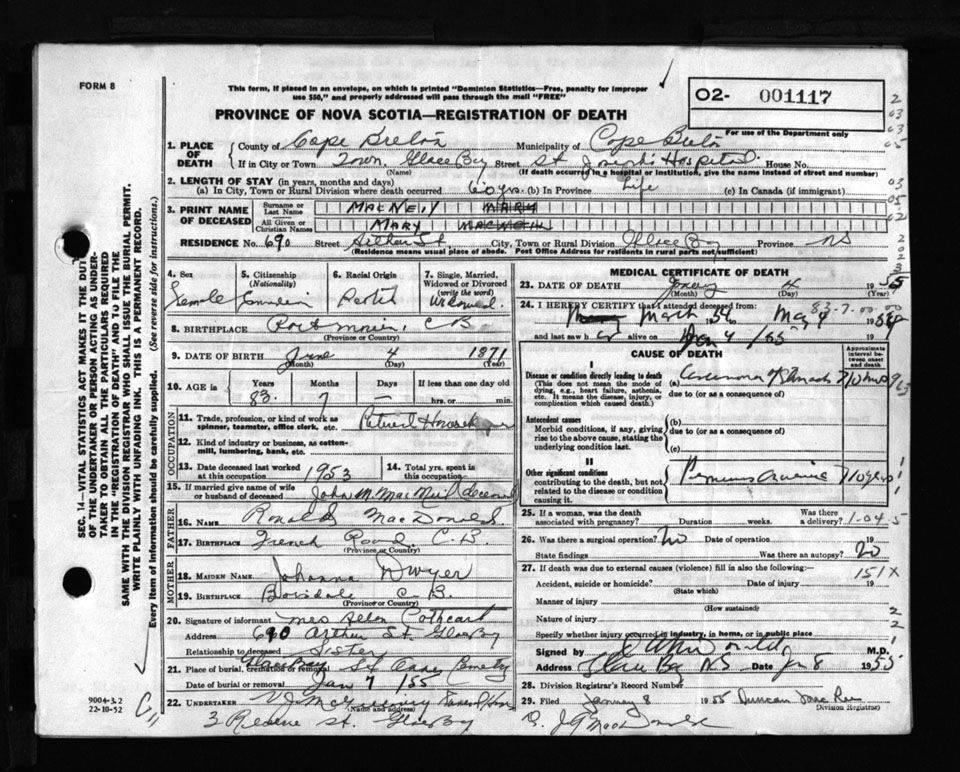 FORM 8
This form, if placed in an envelope, on which is printed "Dominion Statistics—Free, penalty for improper
use $50," and properly addressed will pass through the mail "FREE"
02- 001117
PROVINCE OF NOVA SCOTIA—REGISTRATION OF DEATH
For use of the Department only
1. PLACE OF DEATH
County of Cape Breton Municipality of Cape Breton
If in City or Town Town Glace Bay Street St. Joseph's Hospital House No.
(Name) (If death occurred in a hospital or institution, give the name instead of street and number)
2. LENGTH OF STAY (in years, months and days)
(a) In City, Town or Rural Division where death occurred 60 yrs. (b) In Province Life (c) In Canada (if immigrant)
3. PRINT NAME OF DECEASED
Surname or Last Name MacNeil MARY
All Given or Christian Names MARY
RESIDENCE No. 690 Street Arthur St. City, Town or Rural Division Glace Bay Province NS
(Residence means usual place of abode. Post Office Address for residents in rural parts not sufficient)
4. Sex Female
5. Citizenship (Nationality)
6. Racial Origin
7. Single, Married, Widowed or Divorced (write the word) Widowed
8. BIRTHPLACE Port Morien, C B
(Province or Country)
9. DATE OF BIRTH June 4 1871
(Month) (Day) (Year)
10. AGE in Years Months Days If less than one day old
83 7 — hrs. or min.
OCCUPATION
11. Trade, profession, or kind of work as spinner, teamster, office clerk, etc. Retired
12. Kind of industry or business, as cotton-mill, lumbering, bank, etc.
13. Date deceased last worked at this occupation 1953
14. Total yrs. spent in this occupation
15. If married give name of wife or husband of deceased John M. MacNeil deceased
FATHER
16. NAME Ronald MacDonald
17. BIRTHPLACE French Road, C.B.
(Province or Country)
MOTHER
18. MAIDEN NAME Johanna Dwyer
19. BIRTHPLACE Boisdale C B.
(Province or Country)
20. Signature of informant Mrs Cathcart
Address 690 Arthur St. Glace Bay
Relationship to deceased Sister
21. Place of burial, cremation or removal Glace Bay St Annes Cemetery
Date of burial or removal Jan 7 /55
22. UNDERTAKER V.J.
(Name and address)
3 Reserve St. Glace Bay
MEDICAL CERTIFICATE OF DEATH
23. DATE OF DEATH January 4 1955
(Month) (Day) (Year)
24. I HEREBY CERTIFY that I attended deceased from:
March 1954 to
and last saw h alive on 4 /55 19
CAUSE OF DEATH
Approximate interval between onset and death
I
Disease or condition directly leading to death
(This does not mean the mode of dying, e.g., heart failure, asthenia, etc. It means the disease, injury, or complication which caused death.)
(a) Carcinoma of Stomach
due to (or as a consequence of)
Antecedent causes
Morbid conditions, if any, giving rise to the above cause, stating the underlying condition last.
(b)
due to (or as a consequence of)
(c)
II
Other significant conditions
contributing to the death, but not related to the disease or condition causing it.
25. If a woman, was the death associated with pregnancy? Duration weeks. Was there a delivery?
26. Was there a surgical operation? No Date of operation 19
State findings Was there an autopsy? No
27. If death was due to external causes (violence) fill in also the following:—
151X
Accident, suicide or homicide? Date of injury 19
(State which)
Manner of injury
(How sustained)
Nature of injury
Specify whether injury occurred in industry, in home, or in public place
Signed by M.D.
Address Glace Bay N.S. Date Jan 8 1955
28. Division Registrar's Record Number
29. Filed January 8 1955 Duncan
(Division Registrar)
SEC. 14—VITAL STATISTICS ACT MAKES IT THE DUTY
OF THE UNDERTAKER OR PERSON ACTING AS UNDERTAKER TO OBTAIN ALL THE PARTICULARS REQUIRED
IN THE "REGISTRATION OF DEATH" AND TO FILE THE
SAME WITH THE DIVISION REGISTRAR WHO SHALL ISSUE THE BURIAL PERMIT.
WRITE PLAINLY WITH UNFADING INK. THIS IS A PERMANENT RECORD.
Every item of information should be carefully supplied. (See reverse side for instructions.)
9004-3.2
22-10-52